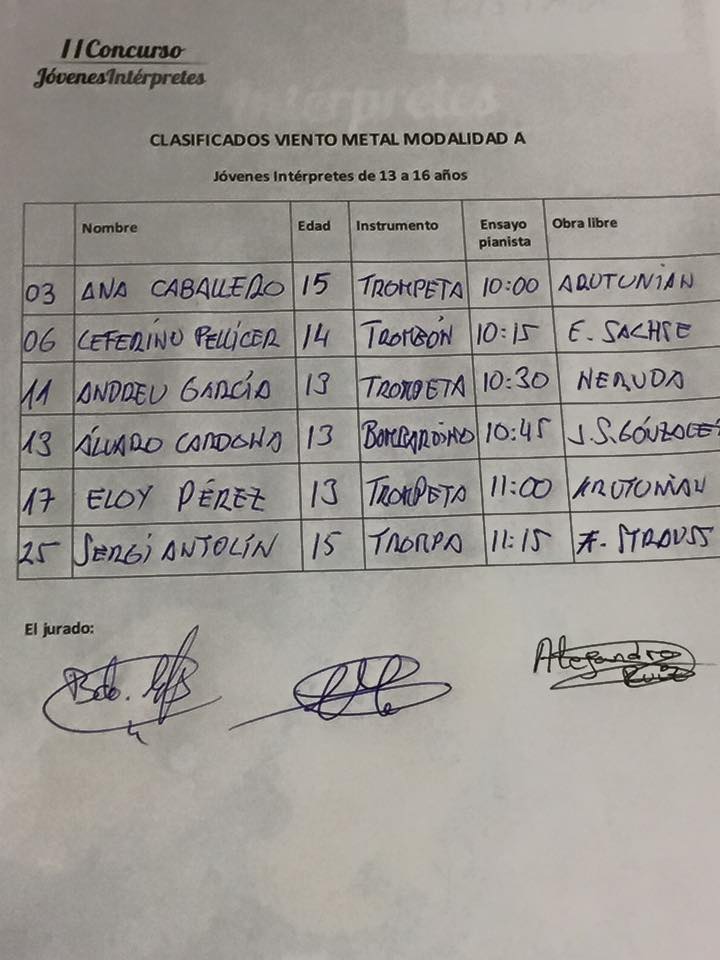 II Concurso
JóvenesIntérpretes
Intérpretes
CLASIFICADOS VIENTO METAL MODALIDAD A
Jóvenes Intérpretes de 13 a 16 años
Nombre Edad Instrumento Ensayo pianista Obra libre
03 ANA CABALLERO 15 TROMPETA 10:00 ARUTUNIAN
06 CEFERINO PELLICER 14 TROMBÓN 10:15 E. SACHSE
11 ANDREU GARCÍA 13 TROMPETA 10:30 NERUDA
13 ÁLVARO CARDONA 13 BOMBARDINO 10:45 J.S. GÓNZALEZ
17 ELOY PÉREZ 13 TROMPETA 11:00 ARUTUNIAN
25 SERGI ANTOLÍN 15 TROMPA 11:15 F. STRAUSS
El jurado:
Alejandro
Ruiz